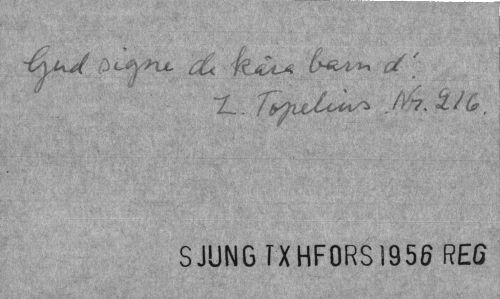 Gud signe de kära barn d'.
Z. Topelius. Nr. 216.
SJUNG TX HFORS 1956 REG